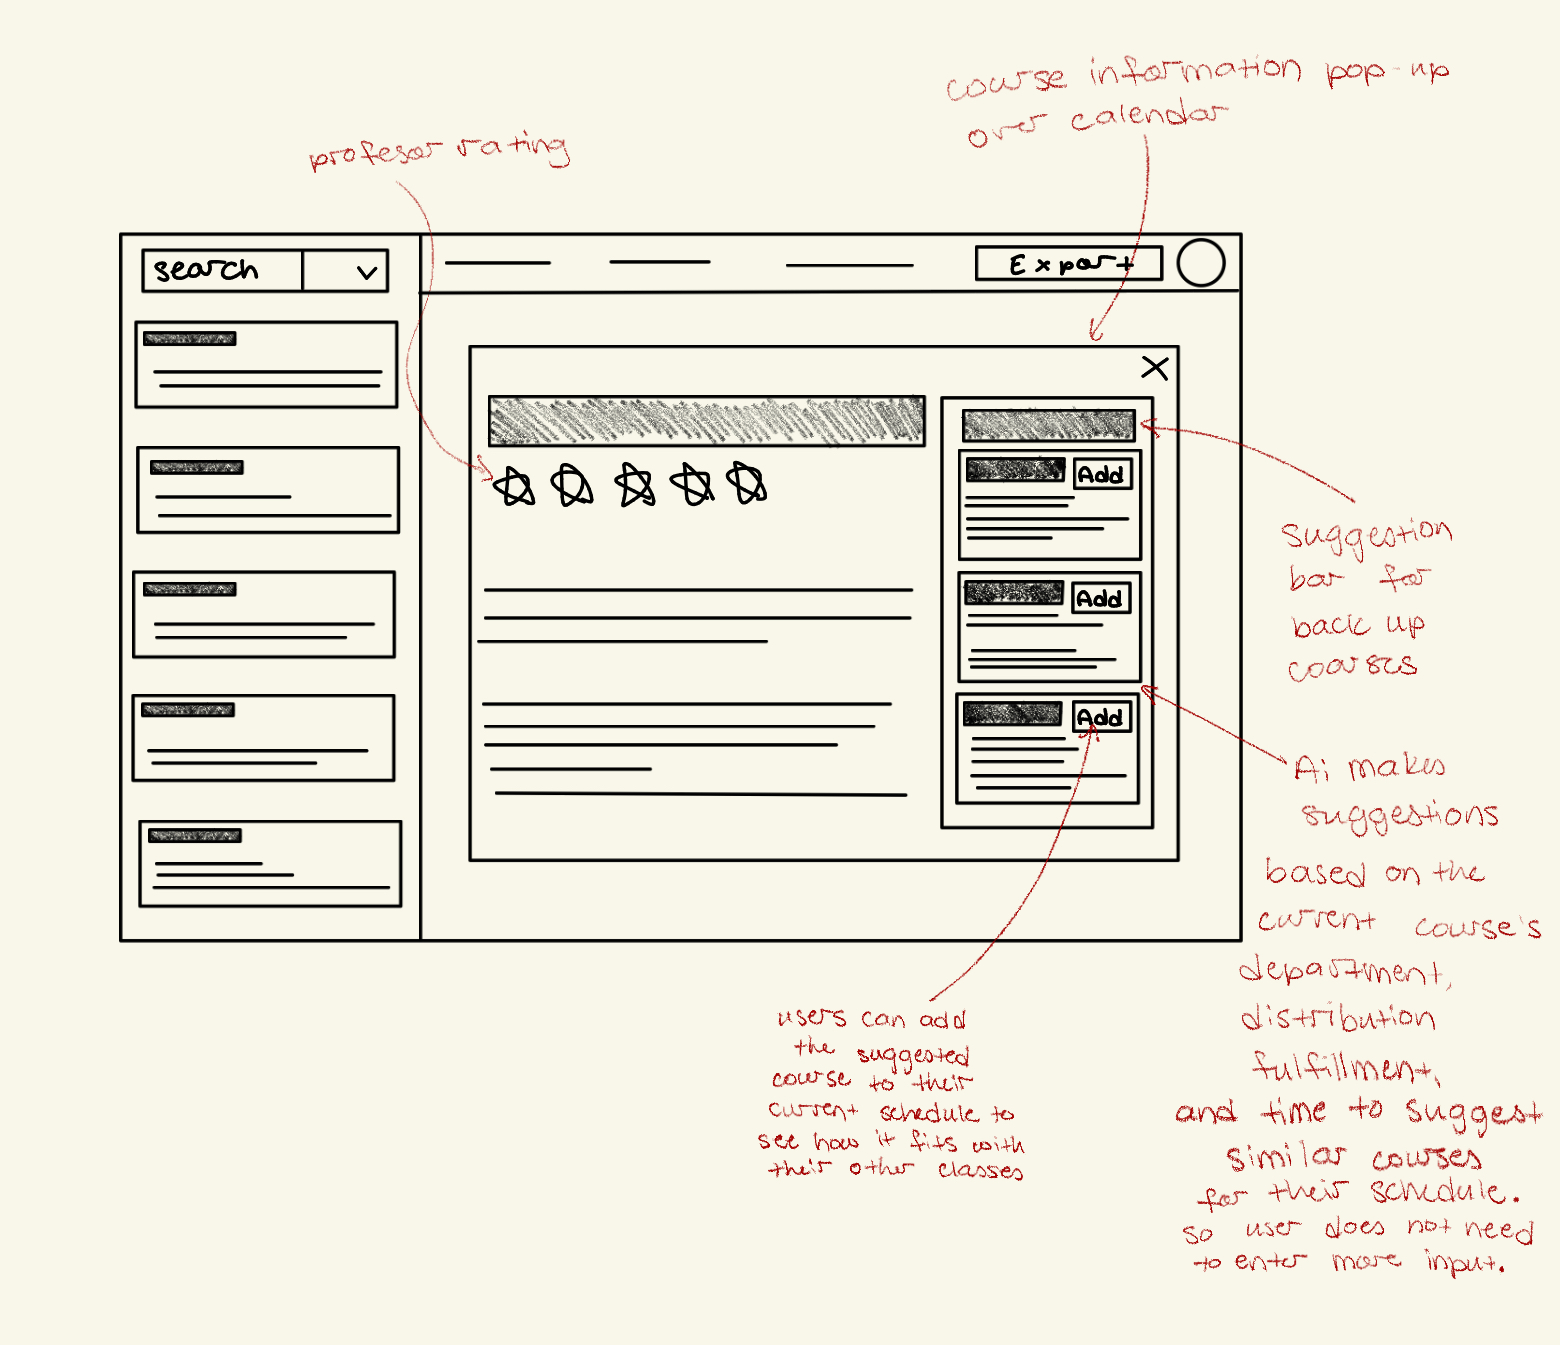 course information pop-up
over calendar
profesor rating
search
Export
Add
Add
Add
suggestion
bar for
back up
courses
Ai makes
suggestions
based on the
current course's
department,
distribution
fulfillment,
and time to suggest
similar courses
for their schedule.
so user does not need
to enter more input.
users can add
the suggested
course to their
current schedule to
see how it fits with
their other classes